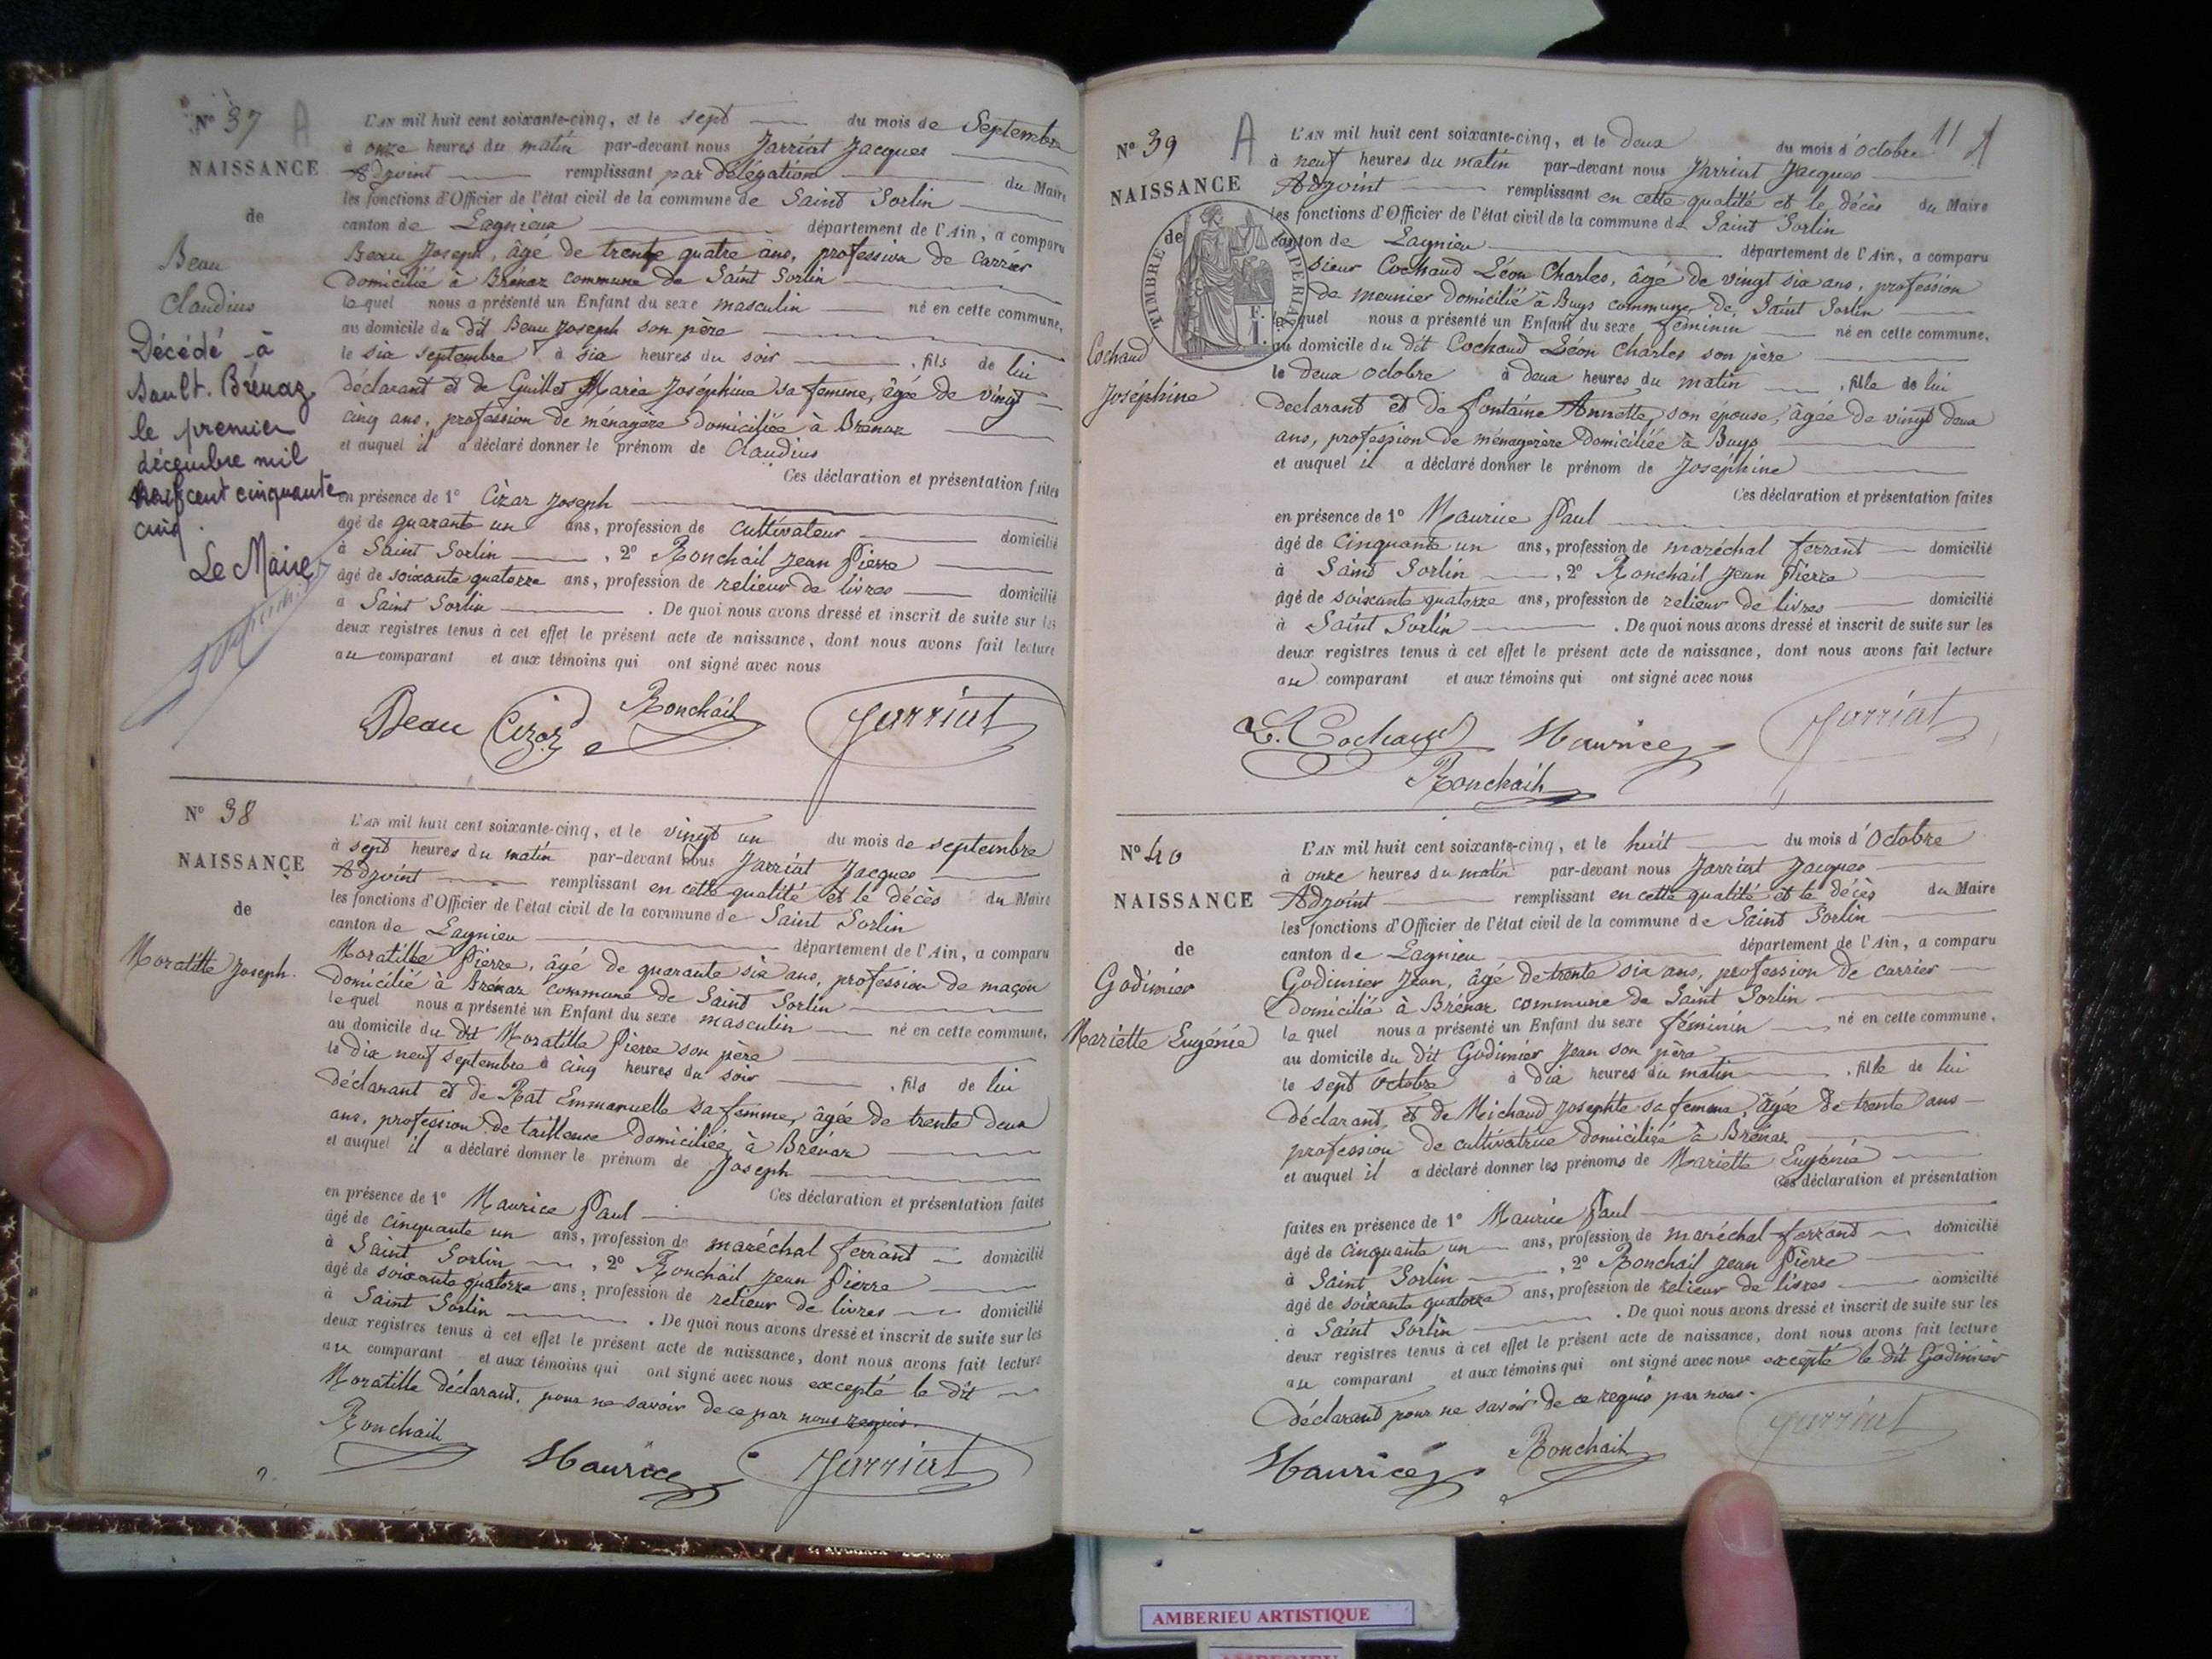 Nº 37 A
NAISSANCE
de
Beau
Claudius
Décédé à
Sault-Brénaz
le premier
décembre mil
neuf cent cinquante
cinq.
Le Maire
L'AN mil huit cent soixante-cinq, et le sept du mois de Septembre
à onze heures du matin par-devant nous Jarriat Jacques
Adjoint remplissant par délégation du Maire
les fonctions d'Officier de l'état civil de la commune de Saint Sorlin
canton de Lagnieu département de l'Ain, a comparu
Beau Joseph, âgé de trente quatre ans, profession de carrier
domicilié à Brénaz commune de Saint Sorlin
lequel nous a présenté un Enfant du sexe masculin né en cette commune,
au domicile du dit Beau Joseph son père
le six septembre à six heures du soir , fils de lui
déclarant et de Guillet Maria Joséphine sa femme, âgée de vingt
cinq ans, profession de ménagère domiciliée à Brénaz
et auquel il a déclaré donner le prénom de Claudius
Ces déclaration et présentation faites
en présence de 1º Cizar Joseph
âgé de quarante un ans, profession de cultivateur domicilié
à Saint Sorlin , 2º Ronchail Jean Pierre
âgé de soixante quatorze ans, profession de relieur de livres domicilié
à Saint Sorlin . De quoi nous avons dressé et inscrit de suite sur les
deux registres tenus à cet effet le présent acte de naissance, dont nous avons fait lecture
au comparant et aux témoins qui ont signé avec nous
Beau Cizar Ronchail Jarriat
Nº 38
NAISSANCE
de
Moratille Joseph.
L'AN mil huit cent soixante-cinq, et le vingt un du mois de septembre
à sept heures du matin par-devant nous Jarriat Jacques
Adjoint remplissant en cette qualité et le décès du Maire
les fonctions d'Officier de l'état civil de la commune de Saint Sorlin
canton de Lagnieu département de l'Ain, a comparu
Moratille Pierre, âgé de quarante six ans, profession de maçon
domicilié à Brénaz commune de Saint Sorlin
lequel nous a présenté un Enfant du sexe masculin né en cette commune,
au domicile du dit Moratille Pierre son père
le dix neuf septembre à cinq heures du soir , fils de lui
déclarant et de Rat Emmanuelle sa femme, âgée de trente deux
ans, profession de tailleuse domiciliée à Brénaz
et auquel il a déclaré donner le prénom de Joseph
Ces déclaration et présentation faites
en présence de 1º Maurice Paul
âgé de cinquante un ans, profession de maréchal ferrant domicilié
à Saint Sorlin , 2º Ronchail Jean Pierre
âgé de soixante quatorze ans, profession de relieur de livres domicilié
à Saint Sorlin . De quoi nous avons dressé et inscrit de suite sur les
deux registres tenus à cet effet le présent acte de naissance, dont nous avons fait lecture
au comparant et aux témoins qui ont signé avec nous excepté le dit
Moratille déclarant, pour ne savoir de ce par nous requis.
Ronchail Maurice Jarriat
11
Nº 39 A
NAISSANCE
de
TIMBRE IMPERIAL
F.
1.
Cochaud
Joséphine
L'AN mil huit cent soixante-cinq, et le deux du mois d'Octobre
à neuf heures du matin par-devant nous Jarriat Jacques
Adjoint remplissant en cette qualité et le décès du Maire
les fonctions d'Officier de l'état civil de la commune de Saint Sorlin
canton de Lagnieu département de l'Ain, a comparu
sieur Cochaud Léon Charles, âgé de vingt six ans, profession
de meunier domicilié à Buys commune de Saint Sorlin
lequel nous a présenté un Enfant du sexe féminin né en cette commune,
au domicile du dit Cochaud Léon Charles son père
le deux octobre à deux heures du matin , fille de lui
declarant et de Fontaine Annette, son épouse, âgée de vingt deux
ans, profession de ménagerère domiciliée à Buys
et auquel il a déclaré donner le prénom de Joséphine
Ces déclaration et présentation faites
en présence de 1º Maurice Paul
âgé de cinquante un ans, profession de maréchal ferrant domicilié
à Saint Sorlin , 2º Ronchail Jean Pierre
âgé de soixante quatorze ans, profession de relieur de livres domicilié
à Saint Sorlin . De quoi nous avons dressé et inscrit de suite sur les
deux registres tenus à cet effet le présent acte de naissance, dont nous avons fait lecture
au comparant et aux témoins qui ont signé avec nous
L. Cochaud Maurice Jarriat
Ronchail
Nº 40
NAISSANCE
de
Godimier
Mariette Eugénie
L'AN mil huit cent soixante-cinq, et le huit du mois d'Octobre
à onze heures du matin par-devant nous Jarriat Jacques
Adjoint remplissant en cette qualité et le décès du Maire
les fonctions d'Officier de l'état civil de la commune de Saint Sorlin
canton de Lagnieu département de l'Ain, a comparu
Godimier Jean, âgé de trente six ans, profession de carrier
domicilié à Brénaz commune de Saint Sorlin
lequel nous a présenté un Enfant du sexe féminin né en cette commune,
au domicile du dit Godimier Jean son père
le sept Octobre à dix heures du matin , fille de lui
déclarant, et de Michaud Josephte sa femme, âgée de trente ans
profession de cultivatrice domiciliée à Brénaz
et auquel il a déclaré donner les prénoms de Mariette Eugénie
Ces déclaration et présentation
faites en présence de 1º Maurice Paul
âgé de cinquante un ans, profession de maréchal ferrant domicilié
à Saint Sorlin , 2º Ronchail Jean Pierre
âgé de soixante quatorze ans, profession de relieur de livres domicilié
à Saint Sorlin . De quoi nous avons dressé et inscrit de suite sur les
deux registres tenus à cet effet le présent acte de naissance, dont nous avons fait lecture
au comparant et aux témoins qui ont signé avec nous excepté le dit Godimier
déclarant pour ne savoir de ce requis par nous.
Maurice Ronchail Jarriat
AMBERIEU ARTISTIQUE